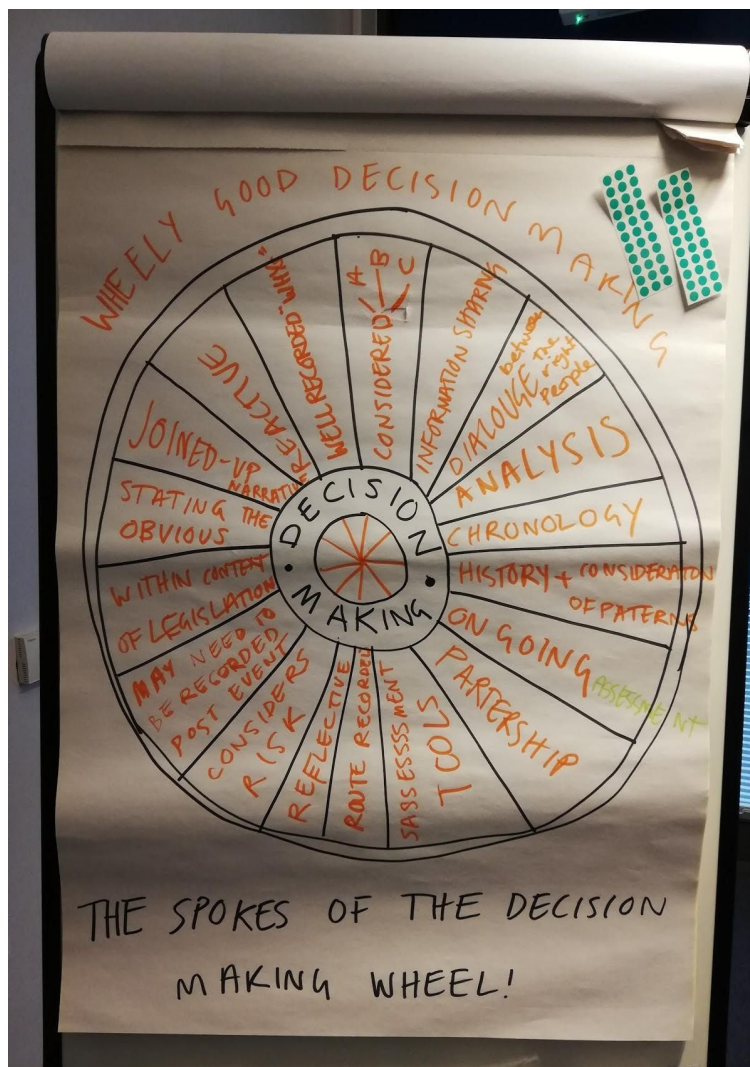 WHEELY GOOD DECISION MAKING
DECISION
MAKING
CONSIDERED
A
B
C
INFORMATION SHARING
DIALOUGE
between
the
right
people
ANALYSIS
CHRONOLOGY
HISTORY + CONSIDERATON
OF PATERNS
ON GOING
ASSESSMENT
PARTERSHIP
SABSESSSMENT
TOOLS
ROUTE RECORDED
REFLECTIVE
CONSIDERS
RISK
MAY NEED TO
BE RECORDED
POST EVENT
WITHIN CONTEXT
OF LEGISLATION
STATING THE
OBVIOUS
JOINED-UP
NARRATIVE
REACTIVE
WELL RECORDED "WHY"
THE SPOKES OF THE DECISION
MAKING WHEEL!